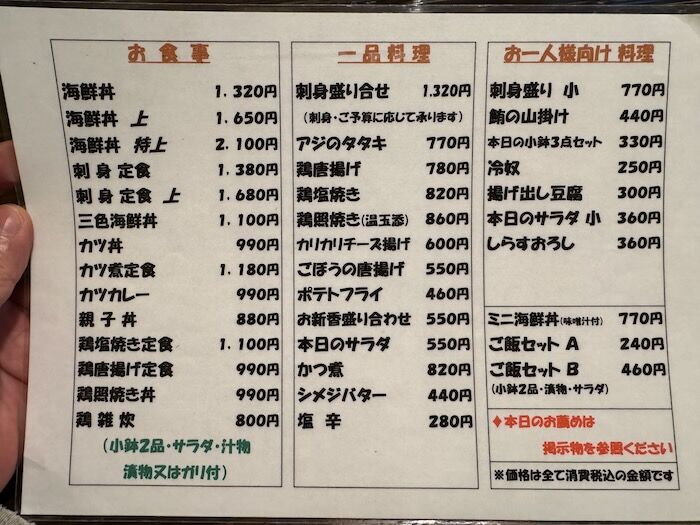 お食事
海鮮丼 1,320円
海鮮丼 上 1,650円
海鮮丼 特上 2,100円
刺身定食 1,380円
刺身定食 上 1,680円
三色海鮮丼 1,100円
カツ丼 990円
カツ煮定食 1,180円
カツカレー 990円
親子丼 880円
鶏塩焼き定食 1,100円
鶏唐揚げ定食 990円
鶏照焼き丼 990円
鶏雑炊 800円
(小鉢2品・サラダ・汁物
漬物又はガリ付)
一品料理
刺身盛り合せ 1,320円
(刺身・ご予算に応じて承ります)
アジのタタキ 770円
鶏唐揚げ 780円
鶏塩焼き 820円
鶏照焼き(温玉添) 860円
カリカリチーズ揚げ 600円
ごぼうの唐揚げ 550円
ポテトフライ 460円
お新香盛り合わせ 550円
本日のサラダ 550円
かつ煮 820円
シメジバター 440円
塩辛 280円
お一人様向け料理
刺身盛り 小 770円
鮪の山掛け 440円
本日の小鉢3点セット 330円
冷奴 250円
揚げ出し豆腐 300円
本日のサラダ 小 360円
しらすおろし 360円
ミニ海鮮丼(味噌汁付) 770円
ご飯セット A 240円
ご飯セット B 460円
(小鉢2品・漬物・サラダ)
♦本日のお薦めは
掲示物を参照ください
※価格は全て消費税込の金額です